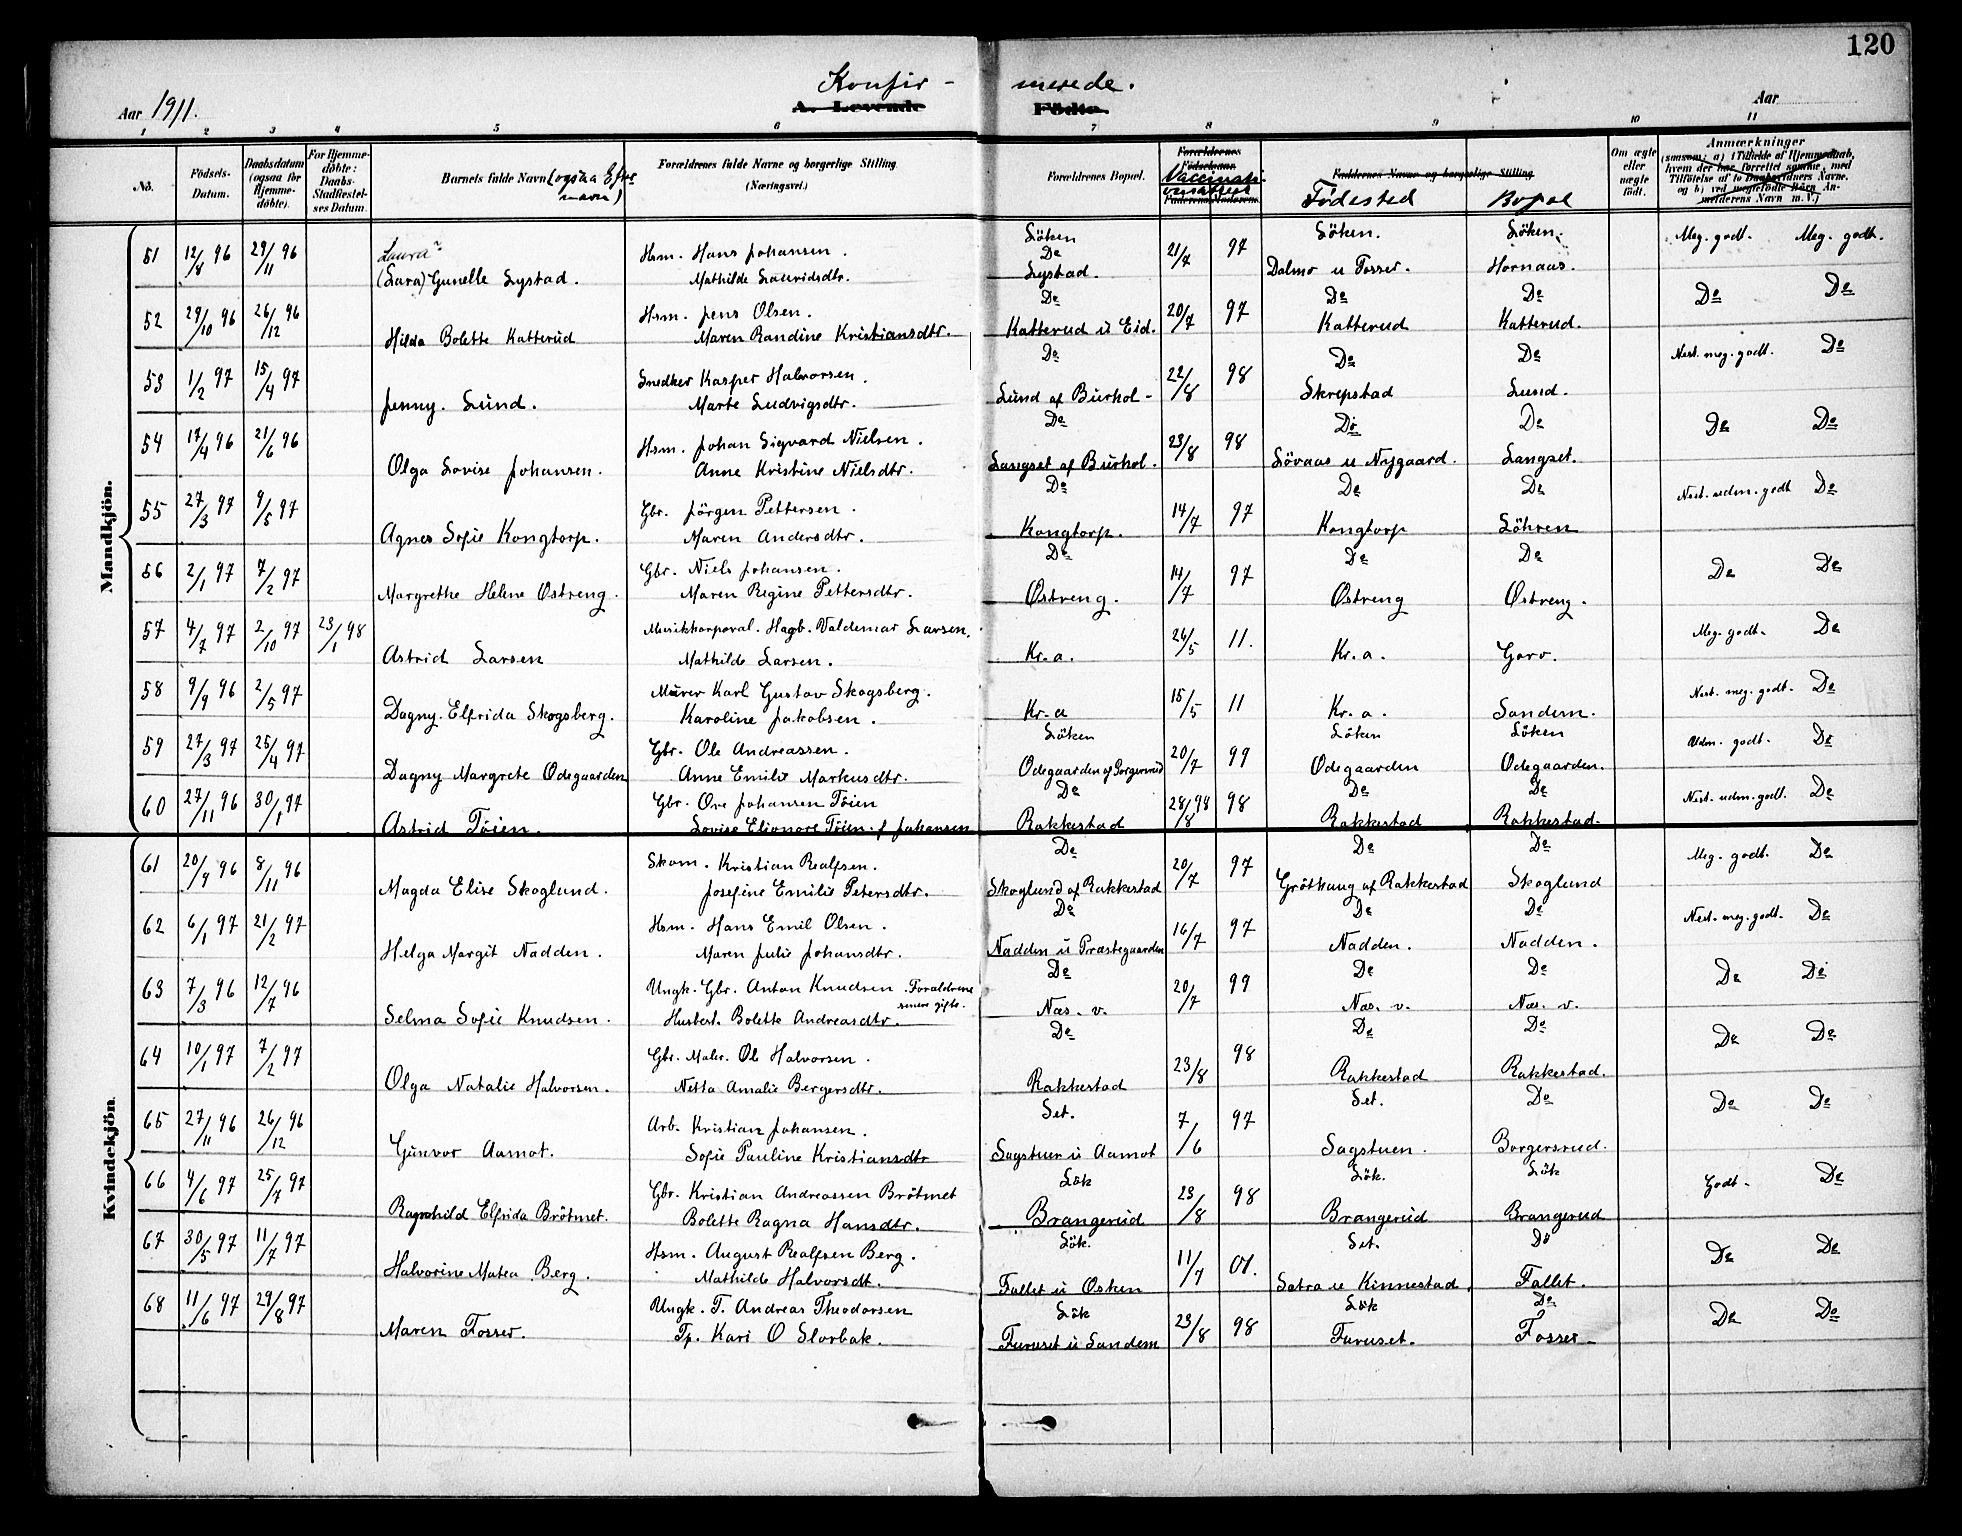 120
Konfir - merede.
Aar 1911. A. Levende Fødte. Aar
1 2 3 4 5 6 7 8 9 10 11
No. Födsels-Datum. Daabsdatum (ogsaa for Hjemme-döbte). For Hjemme-döbte: Daabs-Stadfæstel-ses Datum. Barnets fulde Navn (ogsaa Efternavn) Forældrenes fulde Navne og borgerlige Stilling (Næringsvei.) Forældrenes Bopæl. Forældrenes Födselsaar Faderens Moderens Vaccinationsattest Faddernes Navne og borgerlige Stilling Födested Bopæl Om ægte eller uægte födt. Anmærkninger
Mandkjön.
Löken Löken. Löken.
51 12/8 96 29/11 96 Laura Hsm. Hans Johansen. De 21/7 97 Meg. godt. Meg. godt.
(Lara) Gunelle Lystad. Mathilde Lauridsdtr. Lystad. Dalmo u Fosser. Hornaas.
De De De
52 29/10 96 26/12 96 Hsm. Jens Olsen. 20/7 97 De De
Hilda Bolette Katterud Maren Randine Kristiansdtr. Katterud u Eid. Katterud Katterud.
De De De
53 1/2 97 15/4 97 Snedker Kasper Halvorsen. 22/8 98 Nest. meg. godt. De
Jenny Lund. Marte Ludvigsdtr. Lund af Burhol - Skrepstad Lund.
De De De
54 17/4 96 21/6 96 Hsm. Johan Sigvard Nielsen. 23/8 98 De De
Olga Lovise Johansen. Anne Kristine Nielsdtr. Langset af Burhol. Lövaas u Nygaard. Langset.
De De De
55 27/3 97 9/5 97 Gbr. Jörgen Pettersen. 14/7 97 Nest. udm. godt De
Agnes Sofie Kongtorp. Maren Andersdtr. Kongtorp. Kongtorp Löhren
De De De
56 2/1 97 7/2 97 Gbr. Niels Johansen. 14/7 97 De De
Margrethe Helene Østreng. Maren Regine Pettersdtr. Østreng. Østreng Østreng.
57 4/7 97 2/10 97 23/1 98 Musikkorporal. Hagb. Valdemar Larsen. 26/5 11. Meg. godt. De
Astrid Larsen Mathilde Larsen. Kr.a. Kr.a. Garv.
58 9/9 96 2/5 97 Murer Karl Gustav Skogsberg. 15/5 11 Nest. meg. godt. De
Dagny. Elfrida Skogsberg. Karoline Jakobsen. Kr.a Kr.a. Sandem.
Löken Löken Löken
59 27/3 97 25/4 97 Gbr. Ole Andreassen. 20/7 99 Udm. godt. De
Dagny Margrete Ødegaarden Anne Emilie Markusdtr. Ødegaarden af Ødegaarden Ødegaarden.
De De De
60 27/11 96 30/1 97 Gbr. Ove Johansen Töien 28/8 98 98 Nest. udm. godt. De
Astrid Töien. Lovise Elionore Töien f Johansen Rakkestad Rakkestad Rakkestad.
Kvindekjön.
De De De
61 20/9 96 8/11 96 Skom. Kristian Realfsen. 20/7 97 Meg. godt. De
Magda Elise Skoglund. Josefine Emilie Petersdtr. Skoglund af Rakkestad Gröthaug af Rakkestad Skoglund
De De De
62 6/1 97 21/2 97 Hsm. Hans Emil Olsen. 16/7 97 Nest. meg. godt. De
Helga Margit Nadden. Maren Julie Johansdtr. Nadden u Præstegaarden Nadden. Nadden.
De De De
63 7/3 96 12/7 96 Ungk. Gbr. Anton Knudsen. Forældrene senere gifte. 20/7 99 De De
Selma Sofie Knudsen. Husbest. Bolette Andreasdtr. Næs. v. Næs. v. Næs. v.
De De De
64 10/1 97 7/2 97 Gbr. Maler. Ole Halvorsen. 23/8 98 De De
Olga Natalie Halvorsen. Netta Amalie Bergersdtr. Rakkestad Rakkestad Rakkestad.
Set. Set. De
65 27/11 96 26/12 96 Arb. Kristian Johansen. 7/6 97 De De
Gunvor Aamot. Sofie Pauline Kristiansdtr Sagstuen u Aamot Sagstuen. Borgersrud.
Lök Lök. Lök
66 4/6 97 25/7 97 Gbr. Kristian Andreassen Brötmet 23/8 98 Godt. De
Ragnhild Elfrida Brötmet. Bolette Ragna Hansdtr. Brangerud Brangerud Brangerud
Lök. Set. De
67 30/5 97 11/7 97 Hsm. August Realfsen Berg. 11/7 01. De De
Halvorine Matea Berg. Mathilde Halvorsdt. Fallet u Østen Sætra u Kinnestad. Fallet.
Lök Lök De
68 11/6 97 29/8 97 Ungk. T. Andreas Theodorsen 23/8 98 De De
Maren Fosser. Tp. Kari O Slorbak. Furuset u Sandem Furuset. Fosser